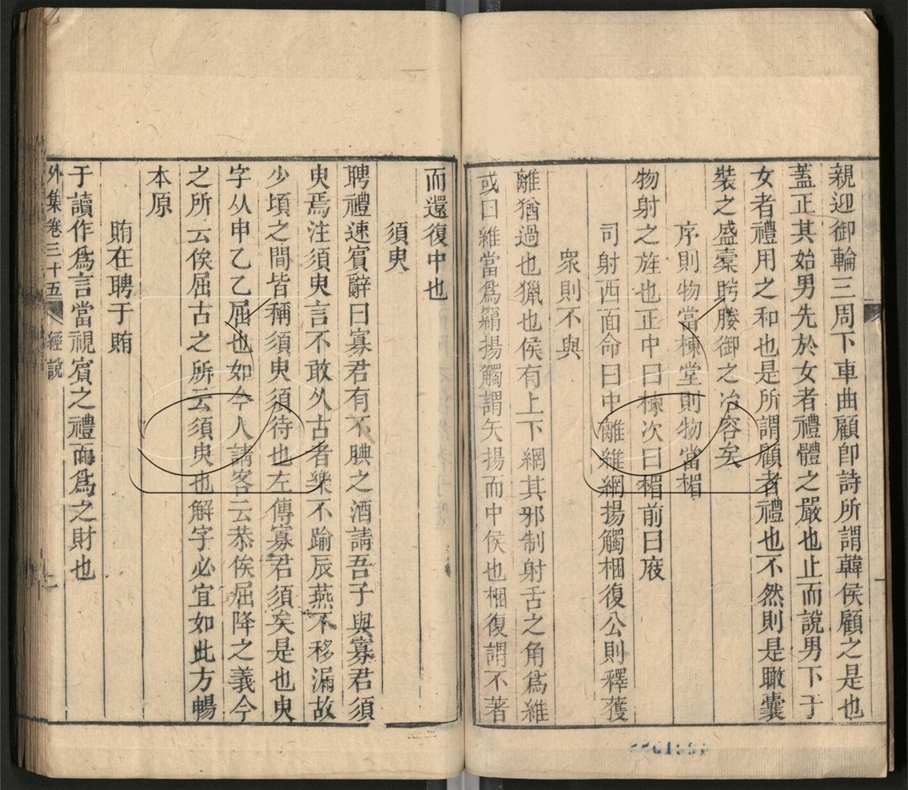 親迎御輪三周下車曲顧卽詩所謂韓侯顧之是也
蓋正其始男先於女者禮體之嚴也止而說男下于
女者禮用之和也是所謂顧者禮也不然則是瞰囊
裝之盛橐盻媵御之冶容矣
序則物當棟堂則物當楣
物射之旌也正中曰棟次曰楣前曰庪
司射西面命曰中離維綱揚觸梱復公則釋獲
衆則不與
離猶過也獵也侯有上下綱其邪制射舌之角爲維
或曰維當爲絹揚觸謂矢揚而中侯也梱復謂不著
而還復中也
須臾
聘禮速賓辭曰寡君有不腆之酒請吾子與寡君須
臾焉注須臾言不敢乆古者樂不踰辰燕不移漏故
少頃之間皆稱須臾須待也左傳寡君須矣是也臾
字从申乙乙屈也如今人請客云恭俟屈降之義今
之所云俟屈古之所云須臾也解字必宜如此方暢
本原
賄在聘于賄
于讀作爲言當視賓之禮而爲之財也
外集卷三十五
經說